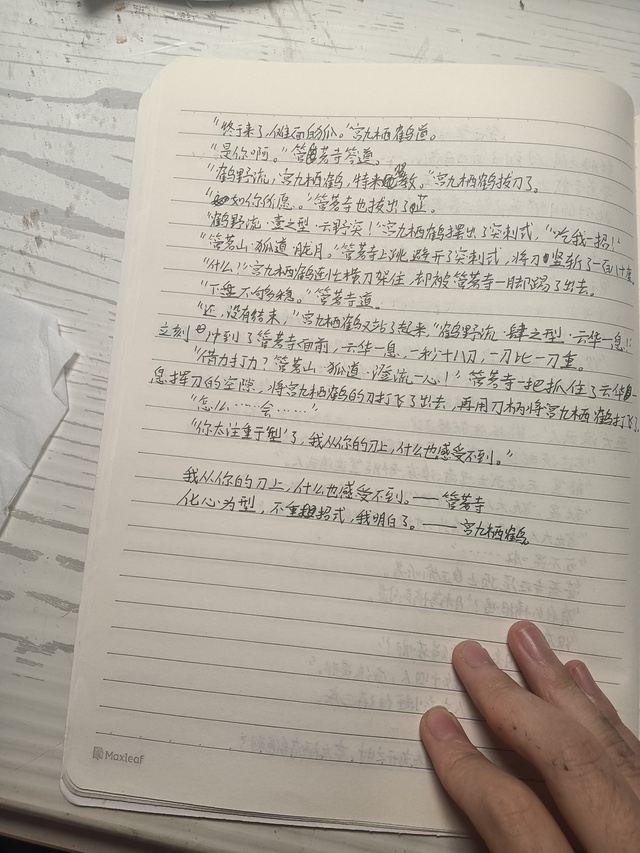 "终于来了,傩面的爪。"宫九栖鹤道。
"是你啊。"管若寺答道。
"鹤野流,宫九栖鹤,特来领教。"宫九栖鹤拔刀了。
"如你所愿。"管若寺也拔出了
"鹤野流·壹之型·云野突!"宫九栖鹤摆出了突刺式,"吃我一招!"
"管若山·狐道·胧月。"管若寺上跳,避开了突刺式,将刀竖斩了一百八十度。
"什么!"宫九栖鹤连忙横刀架住,却被管若寺一脚踢了出去。
"下盘不够稳。"管若寺道。
"还,没有结束,"宫九栖鹤又站了起来,"鹤野流·肆之型·云华一息!"
立刻冲到了管若寺面前,云华一息,一秒十八刀,一刀比一刀重。
"借力打力?管若山·狐道·流一心!"管若寺一把抓住了云华一
息挥刀的空隙,将宫九栖鹤的刀打飞了出去,再用刀柄将宫九栖鹤打飞了。
"怎么……会……"
"你太注重于'型'了,我从你的刀上,什么也感受不到。"
我从你的刀上,什么也感受不到。——管若寺
化心为型,不重招式,我明白了。——宫九栖鹤
Maxleaf